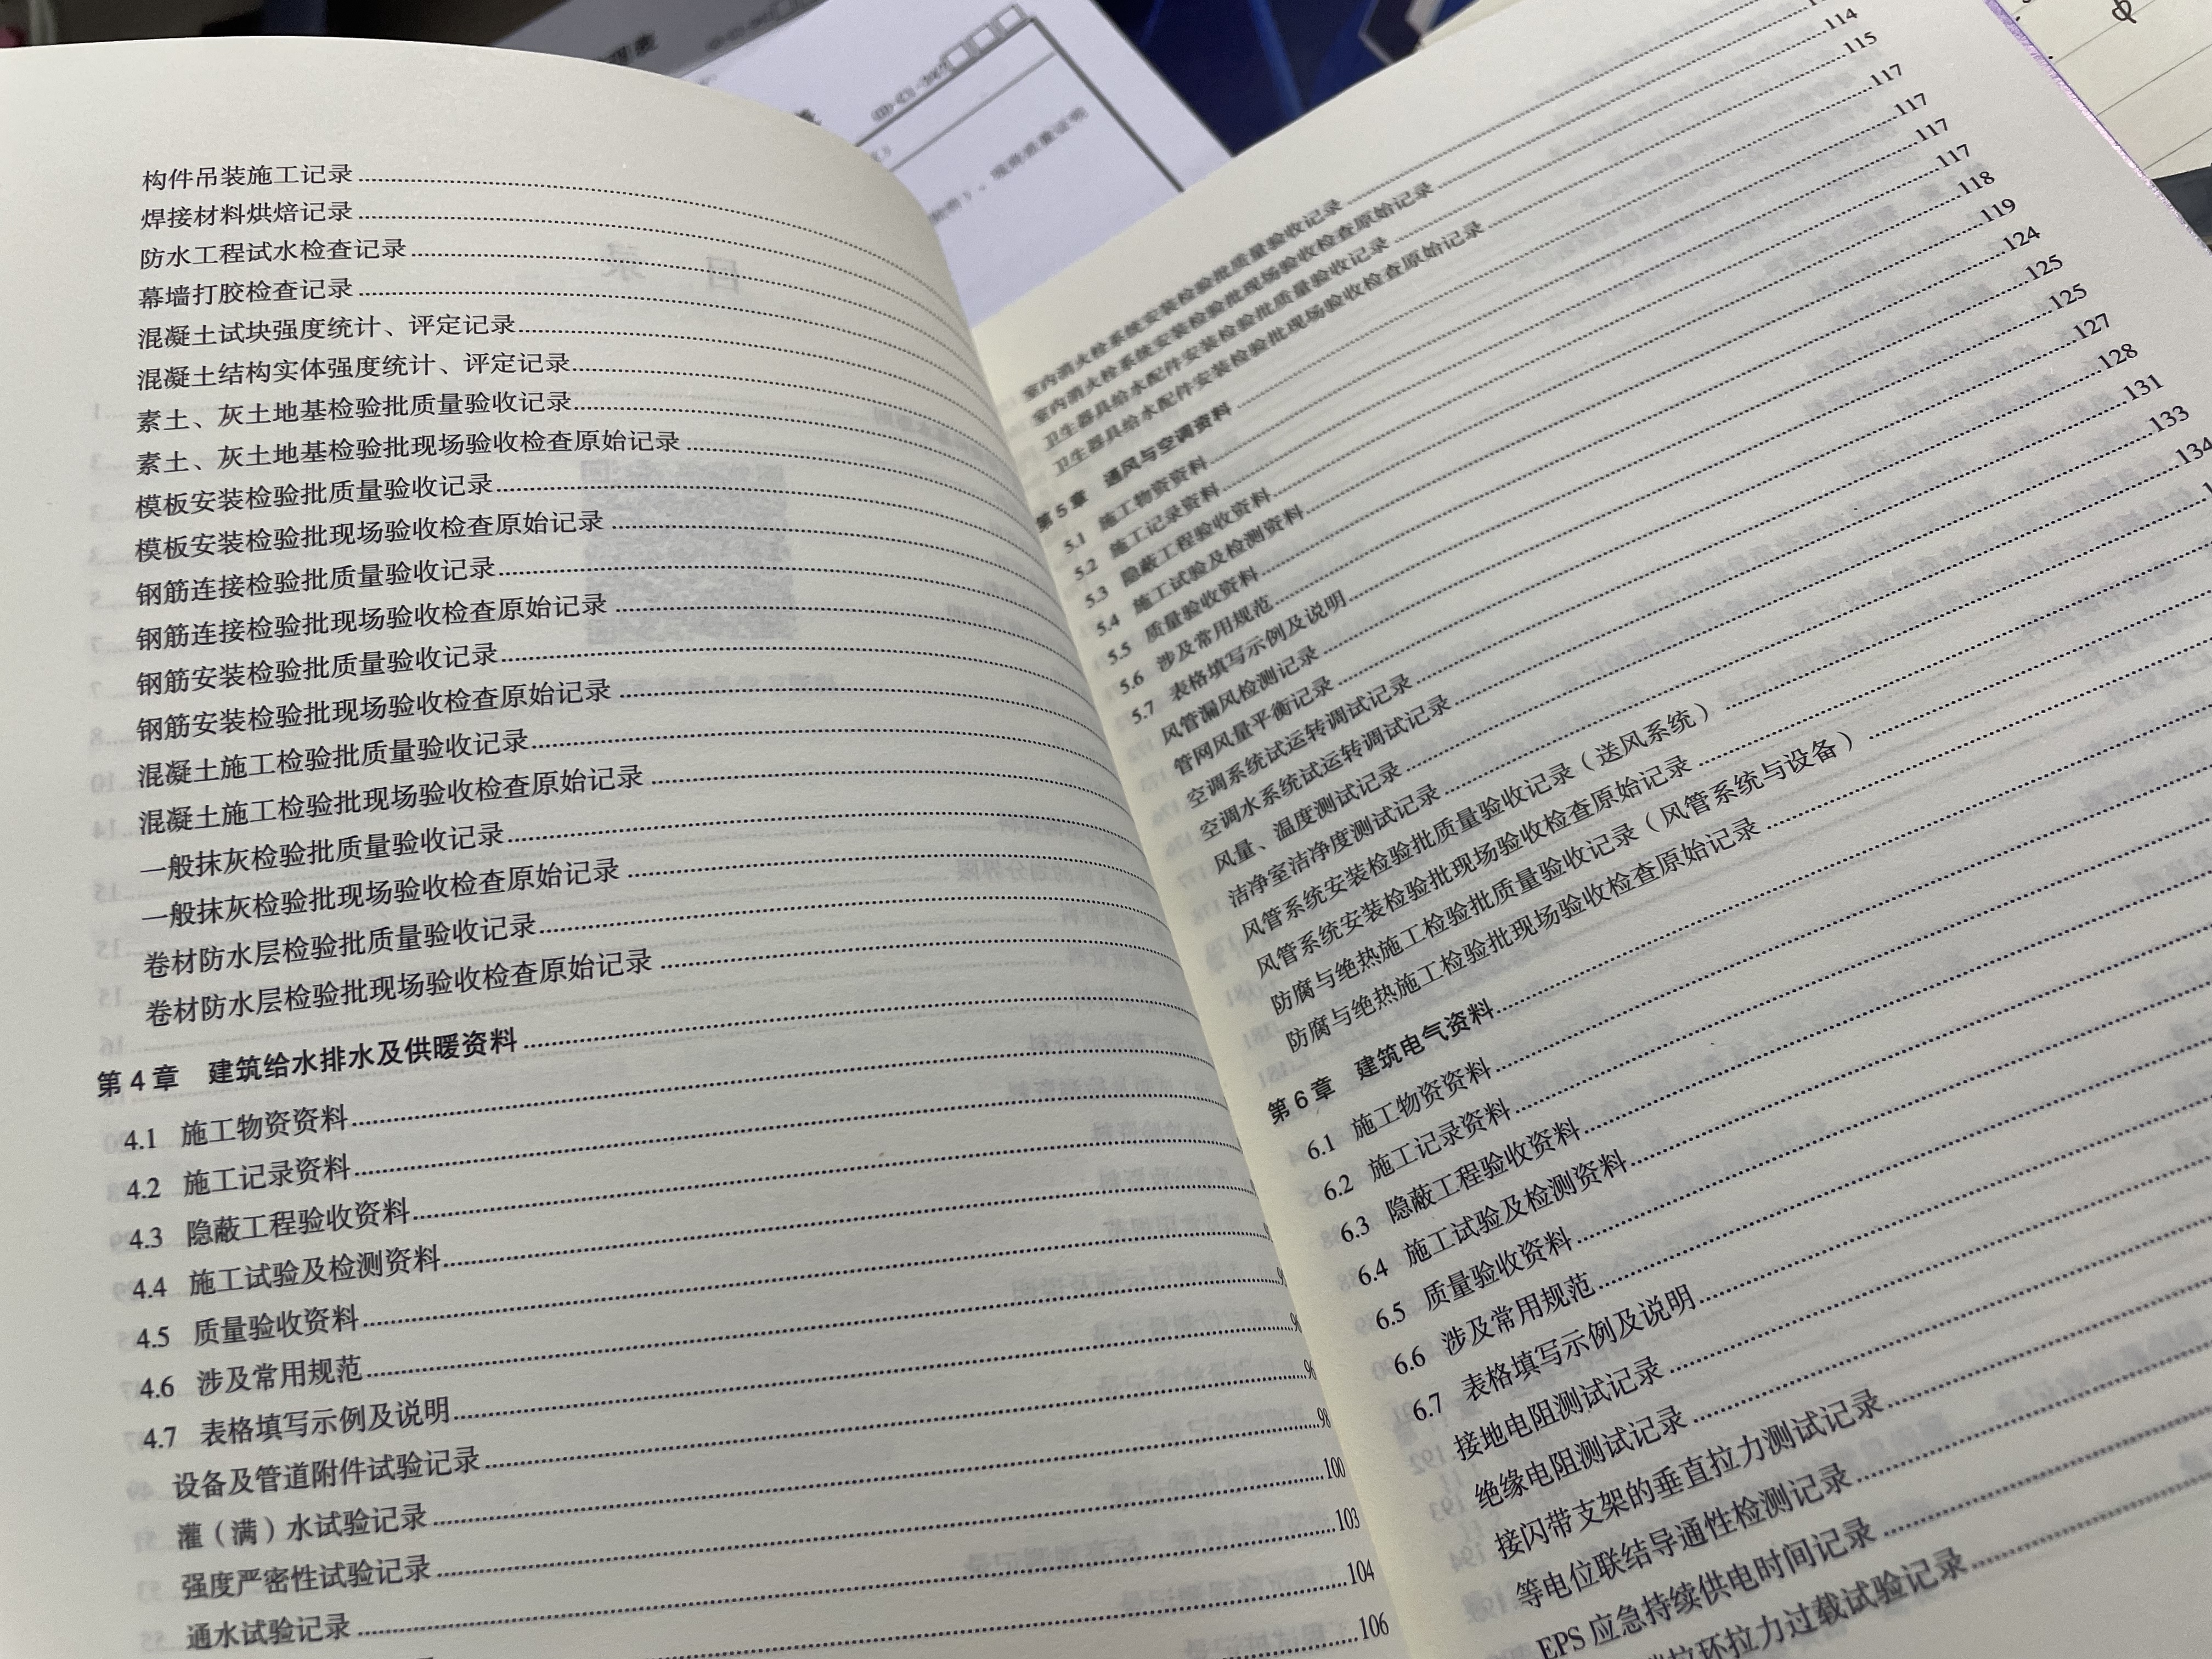 构件吊装施工记录
焊接材料烘焙记录
防水工程试水检查记录
幕墙打胶检查记录
混凝土试块强度统计、评定记录
混凝土结构实体强度统计、评定记录
素土、灰土地基检验批质量验收记录
素土、灰土地基检验批现场验收检查原始记录
模板安装检验批质量验收记录
模板安装检验批现场验收检查原始记录
钢筋连接检验批质量验收记录
钢筋连接检验批现场验收检查原始记录
钢筋安装检验批质量验收记录
钢筋安装检验批现场验收检查原始记录
混凝土施工检验批质量验收记录
混凝土施工检验批现场验收检查原始记录
一般抹灰检验批质量验收记录
一般抹灰检验批现场验收检查原始记录
卷材防水层检验批质量验收记录
卷材防水层检验批现场验收检查原始记录
第4章 建筑给水排水及供暖资料
4.1 施工物资资料
4.2 施工记录资料
4.3 隐蔽工程验收资料
4.4 施工试验及检测资料
4.5 质量验收资料
4.6 涉及常用规范
4.7 表格填写示例及说明
设备及管道附件试验记录 98
灌（满）水试验记录 100
强度严密性试验记录 103
通水试验记录 104
106
114
115
117
117
117
117
118
119
124
125
125
127
128
131
133
134
室内消火栓系统安装检验批质量验收记录
室内消火栓系统安装检验批现场验收检查原始记录
卫生器具给水配件安装检验批质量验收记录
卫生器具给水配件安装检验批现场验收检查原始记录
第5章 通风与空调资料
5.1 施工物资资料
5.2 施工记录资料
5.3 隐蔽工程验收资料
5.4 施工试验及检测资料
5.5 质量验收资料
5.6 涉及常用规范
5.7 表格填写示例及说明
风管漏风检测记录
管网风量平衡记录
空调系统试运转调试记录
空调水系统试运转调试记录
风量、温度测试记录
洁净室洁净度测试记录
风管系统安装检验批质量验收记录（送风系统）
风管系统安装检验批现场验收检查原始记录
防腐与绝热施工检验批质量验收记录（风管系统与设备）
防腐与绝热施工检验批现场验收检查原始记录
第6章 建筑电气资料
6.1 施工物资资料
6.2 施工记录资料
6.3 隐蔽工程验收资料
6.4 施工试验及检测资料
6.5 质量验收资料
6.6 涉及常用规范
6.7 表格填写示例及说明
接地电阻测试记录
绝缘电阻测试记录
接闪带支架的垂直拉力测试记录
等电位联结导通性检测记录
EPS应急持续供电时间记录
拉环拉力过载试验记录